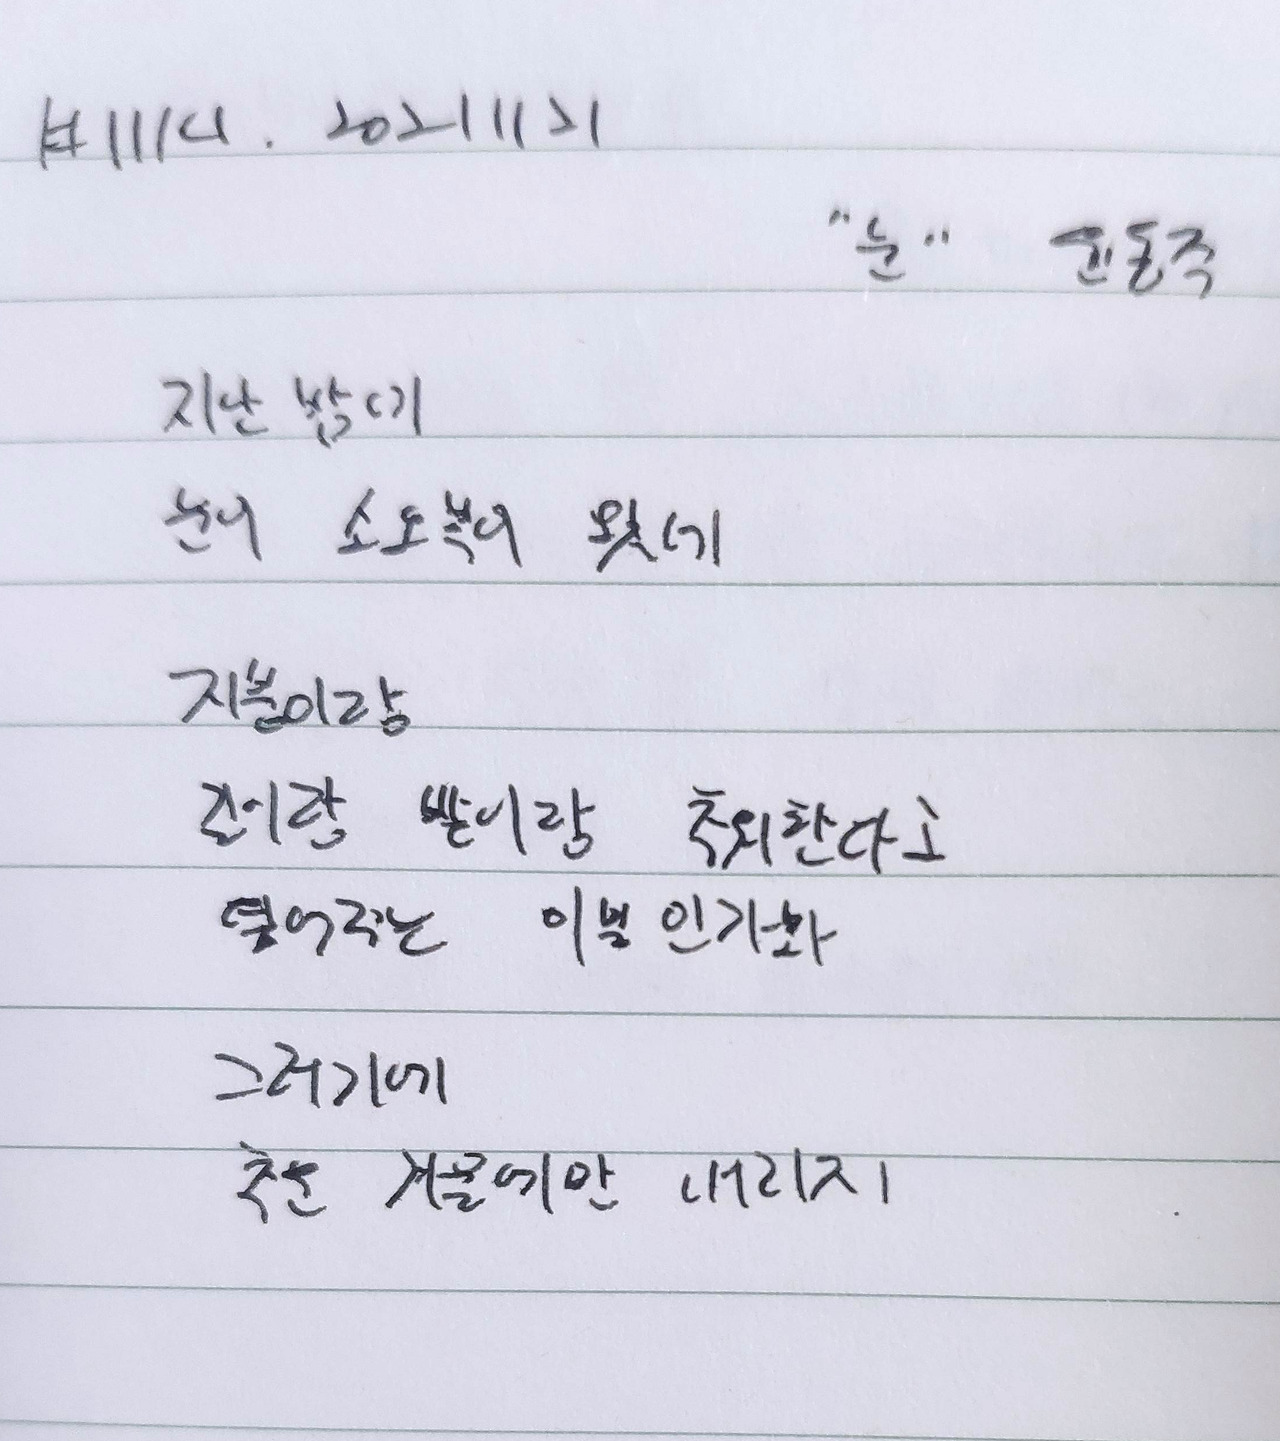 #1114. 20211121
"눈" 윤동주
지난밤에
눈이 소오복이 왓네
지붕이랑
길이랑 밭이랑 추워한다고
덮어주는 이불인가봐
그러기에
추운 겨울에만 내리지